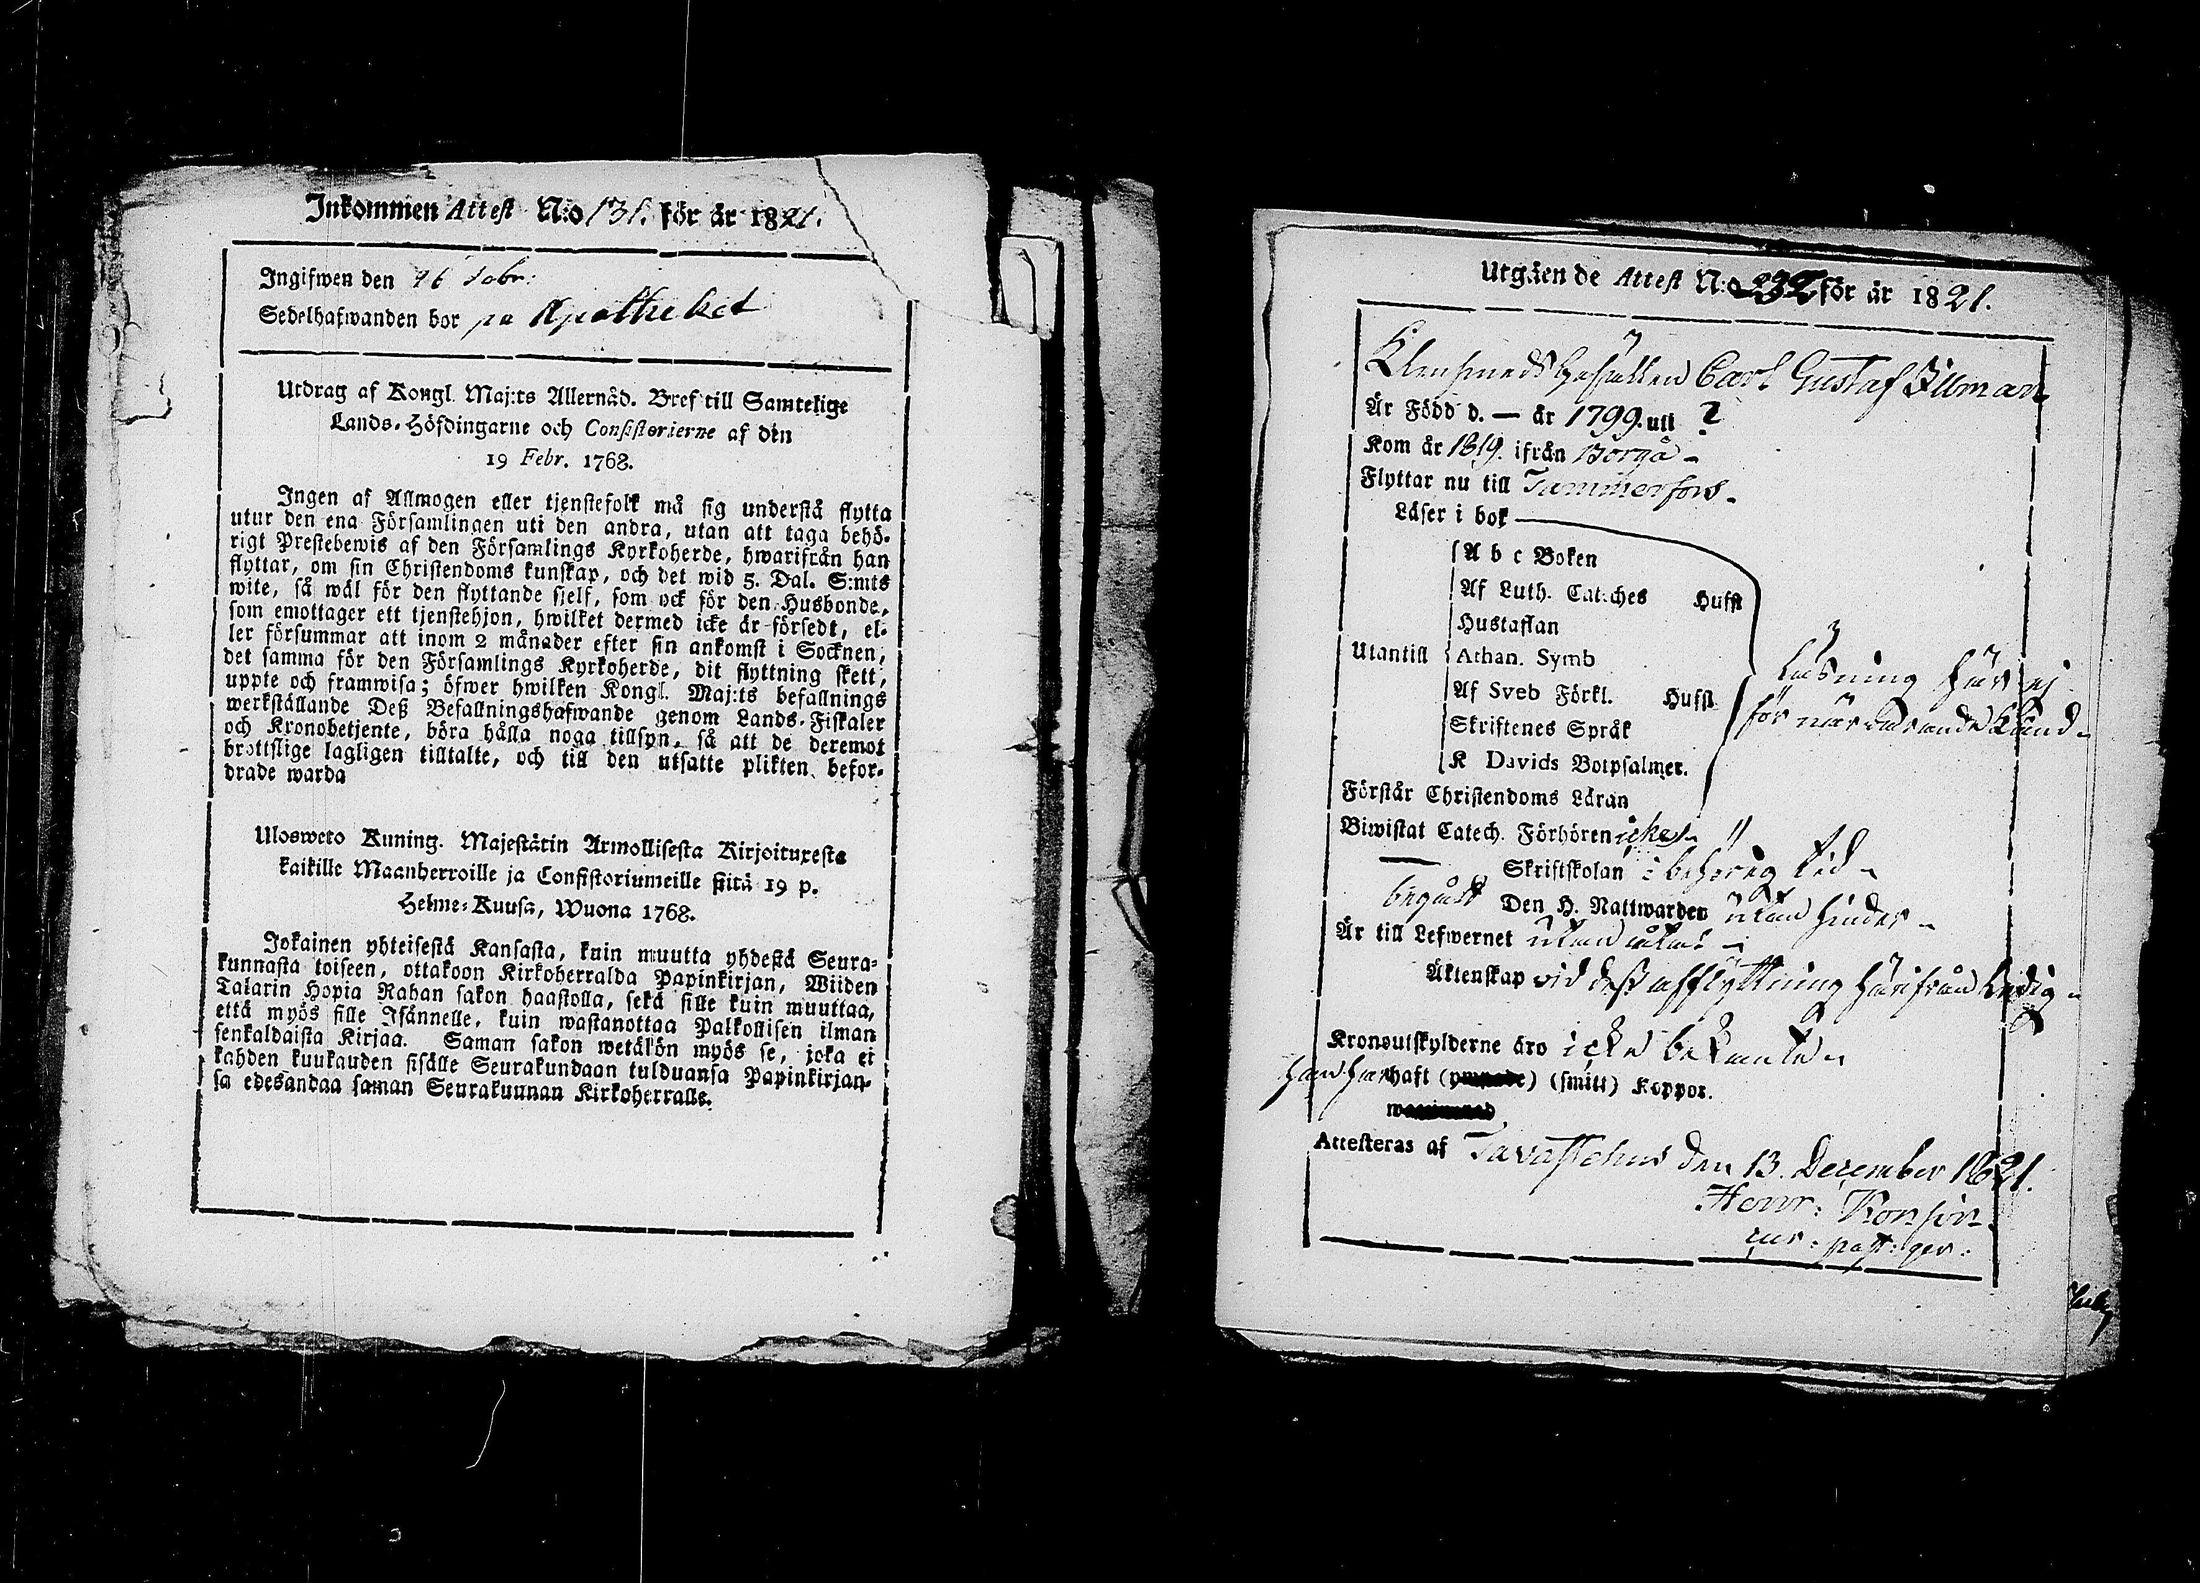 Inkommen Attest N:o 131. för år 1821.
Ingifwen den 16 Xbr:
Sedelhafwanden bor på Apotheket
Utdrag af Kongl. Maj:ts Allernåd. Bref till Samtelige
Lands-Höfdingarne och Consistorierne af den
19 Febr. 1768.
Ingen af Allmogen eller tjenstefolk må sig understå flytta
utur den ena Församlingen uti den andra, utan att taga behö-
rigt Prestebewis af den Församlings Kyrkoherde, hwarifrån han
flyttar, om sin Christendoms kunskap, och det wid 5. Dal. S:mts
wite, så wäl för den flyttande sjelf, som ock för den Husbonde,
som emottager ett tjenstehjon, hwilket dermed icke är försedt, el-
ler försummar att inom 2 månader efter sin ankomst i Socknen,
det samma för den Församlings Kyrkoherde, dit flyttning skett,
uppte och framwisa; öfwer hwilken Kongl. Maj:ts befallnings
werkställande Deß Befallningshafwande genom Lands-Fiskaler
och Kronobetjente, böra hålla noga tillsyn, så att de deremot
brottslige lagligen tilltalte, och till den utsatte plikten befor-
drade warda
Ulosweto Kuning. Majestätin Armollisesta Kirjoituxesta
kaikille Maanherroille ja Consistoriumeille siitä 19 p.
Helme-Kuusa, Wuona 1768.
Jokainen yhteisestä Kansasta, kuin muutta yhdestä Seura-
kunnasta toiseen, ottakoon Kirkoherralda Papinkirjan, Wiiden
Talarin Hopia Rahan sakon haastolla, sekä sille kuin muuttaa,
että myös sille Isännelle, kuin wastanottaa Palkollisen ilman
senkaldaista Kirjaa. Saman sakon wetäkön myös se, joka ei
kahden kuukauden sisälle Seurakundaan tulduansa Papinkirjan-
sa edesandaa saman Seurakunnan Kirkoherralle.
Utgåen de Attest N:o 232 för år 1821.
Klensmeds Gesällen Carl Gustaf Illman
Är Född d. — år 1799. uti ?
Kom år 1819. ifrån Borgå -
Flyttar nu till Tammerfors -
Läser i bok
A b c Boken
Af Luth. Catches Husfl
Hustaflan
Utantill Athan. Symb
Af Sveb Förkl. Husfl
Skriftenes Språk
K Davids Botpsalmer.
Läsning här ej
för närvarande känd -
Förstår Christendoms Läran
Biwistat Catech. Förhören icke -
— Skriftskolan i behörig tid -
begått Den H. Nattwarden utan hinder -
Är till Lefwernet utan -
Äktenskap vid deß afflyttning härifrån ledig -
Kronoutskylderne äro icke bekante -
Han har haft (ympade) (smitt) Koppor.
Attesteras af Tavastehus den 13. December 1821.
Henr: Konsin
cur: past: ger: